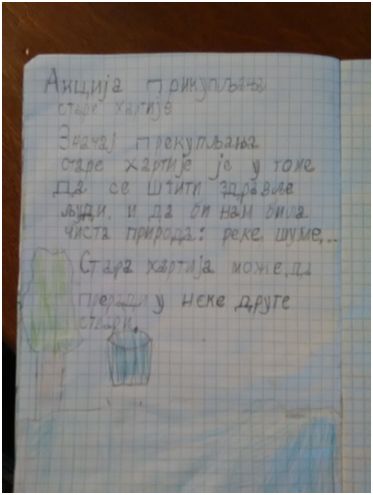 Акција прикупљања
старе хартије
Значај прекупљања
старе хартије је у томе
да се штити здравље
људи, и да би нам била
чиста природа: реке, шуме,...
Стара хартија може, да
преради у неке друге
ствари.